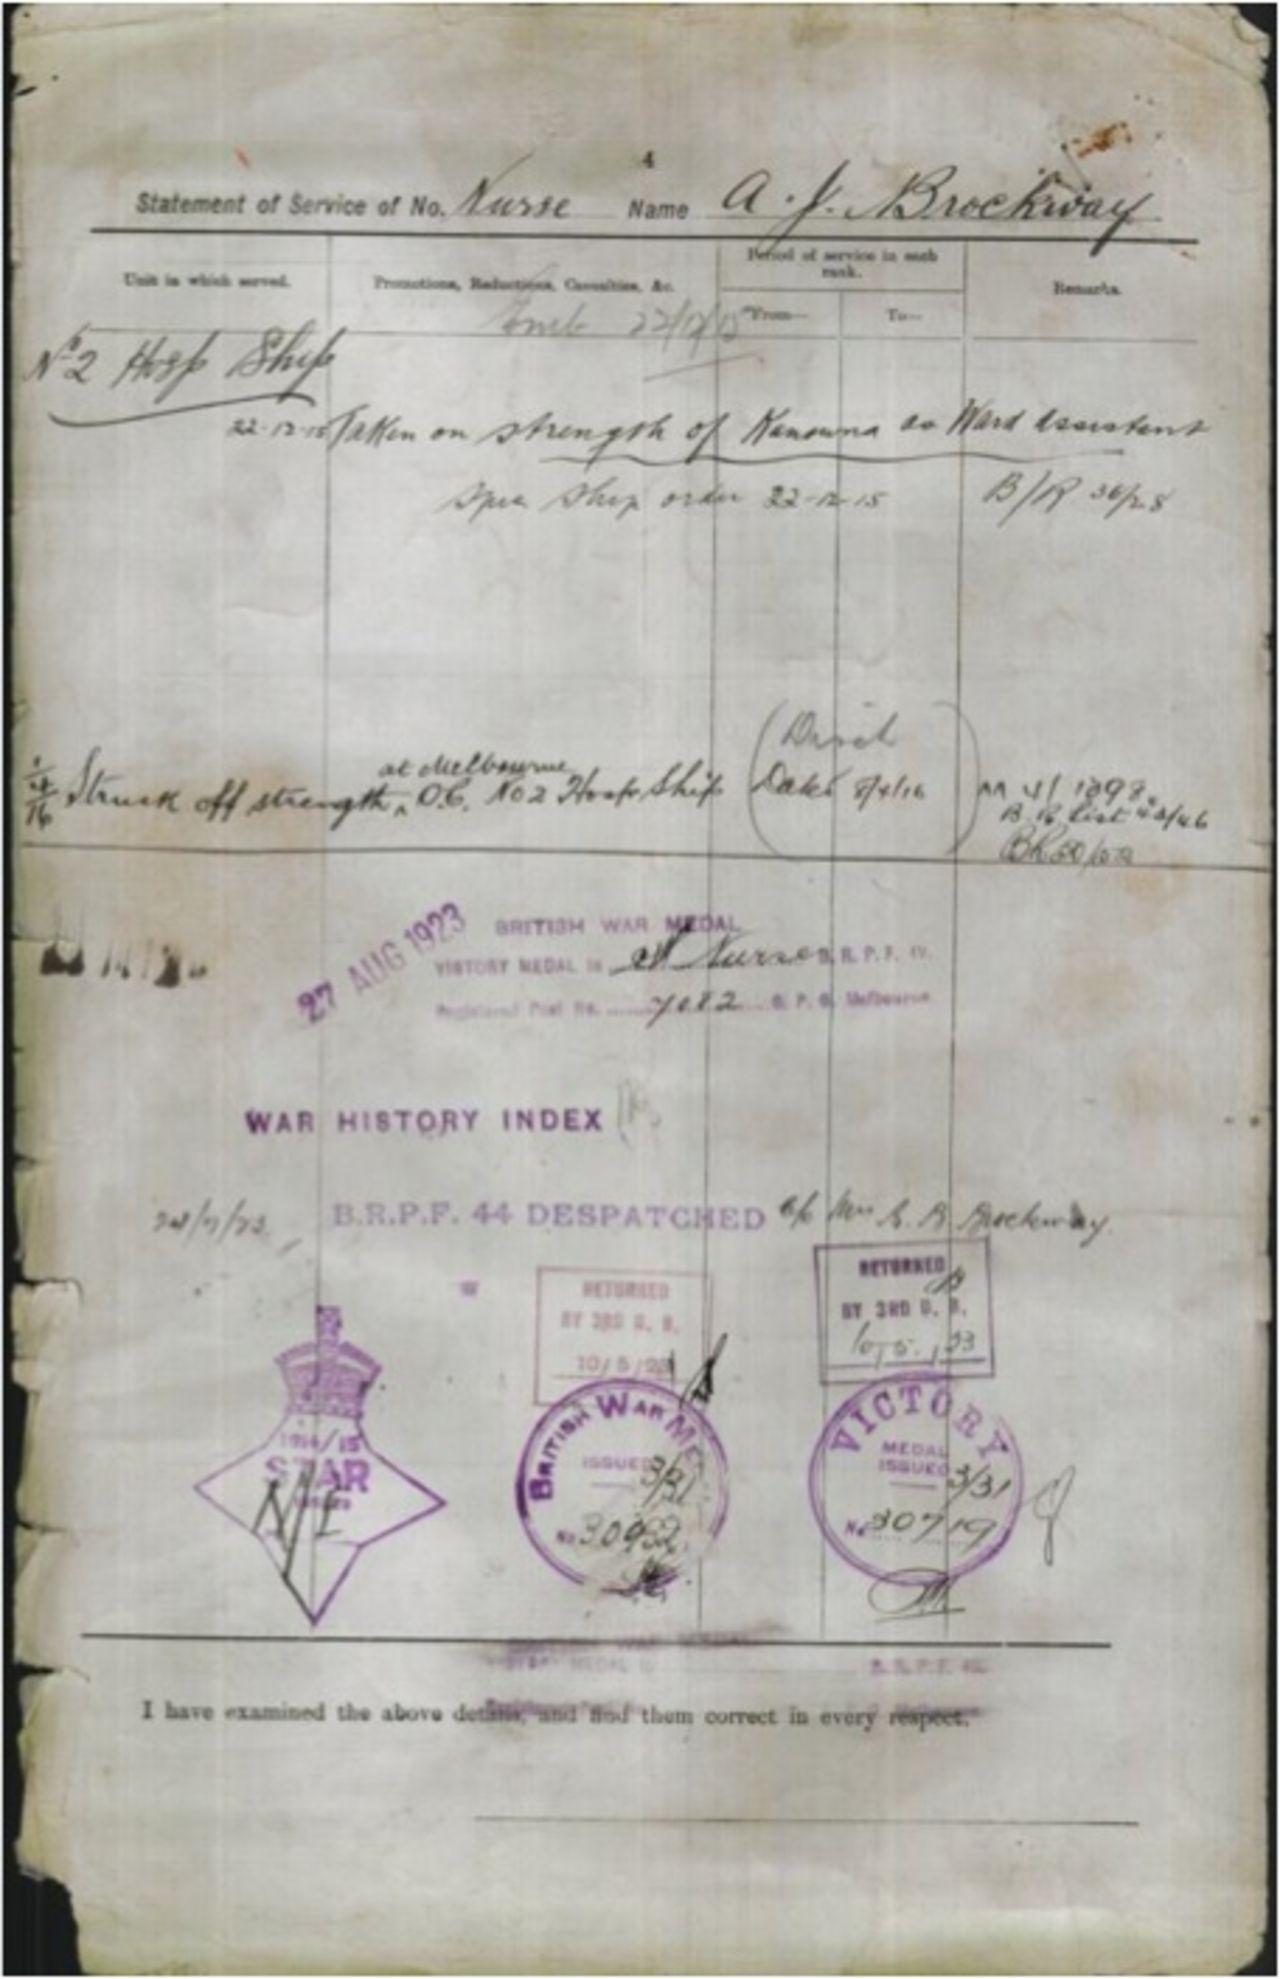 4
Statement of Service of No. Nurse Name A. J. Brockway
Unit in which served. Promotions, Reductions, Casualties, &c. Period of service in each rank. Remarks.
From— To—
Emb 22/12/15
No 2 Hosp Ship
22-12-15 Taken on strength of Kanowna as Ward Assistant
Ship order 22-12-15 B/R 36/28
at Melbourne
Struck off strength O.C. No 2 Hosp Ship
Disch
Dated 8/4/16
B. R. List 43/46
27 AUG 1923
BRITISH WAR MEDAL
VICTORY MEDAL to Nurse B. R. P. F. IV.
Registered Post No. 7082 G. P. O. Melbourne
WAR HISTORY INDEX
B.R.P.F. 44 DESPATCHED c/o Mrs Brockway.
RETURNED
BY 3RD
10/5/23
RETURNED
BY 3RD
10/5/23
1914/15
STAR
ISSUED
NE
BRITISH WAR ME
ISSUED 3/31
No.
VICTORY
MEDAL
ISSUED 3/31
No. 30719
I have examined the above details, and find them correct in every respect.